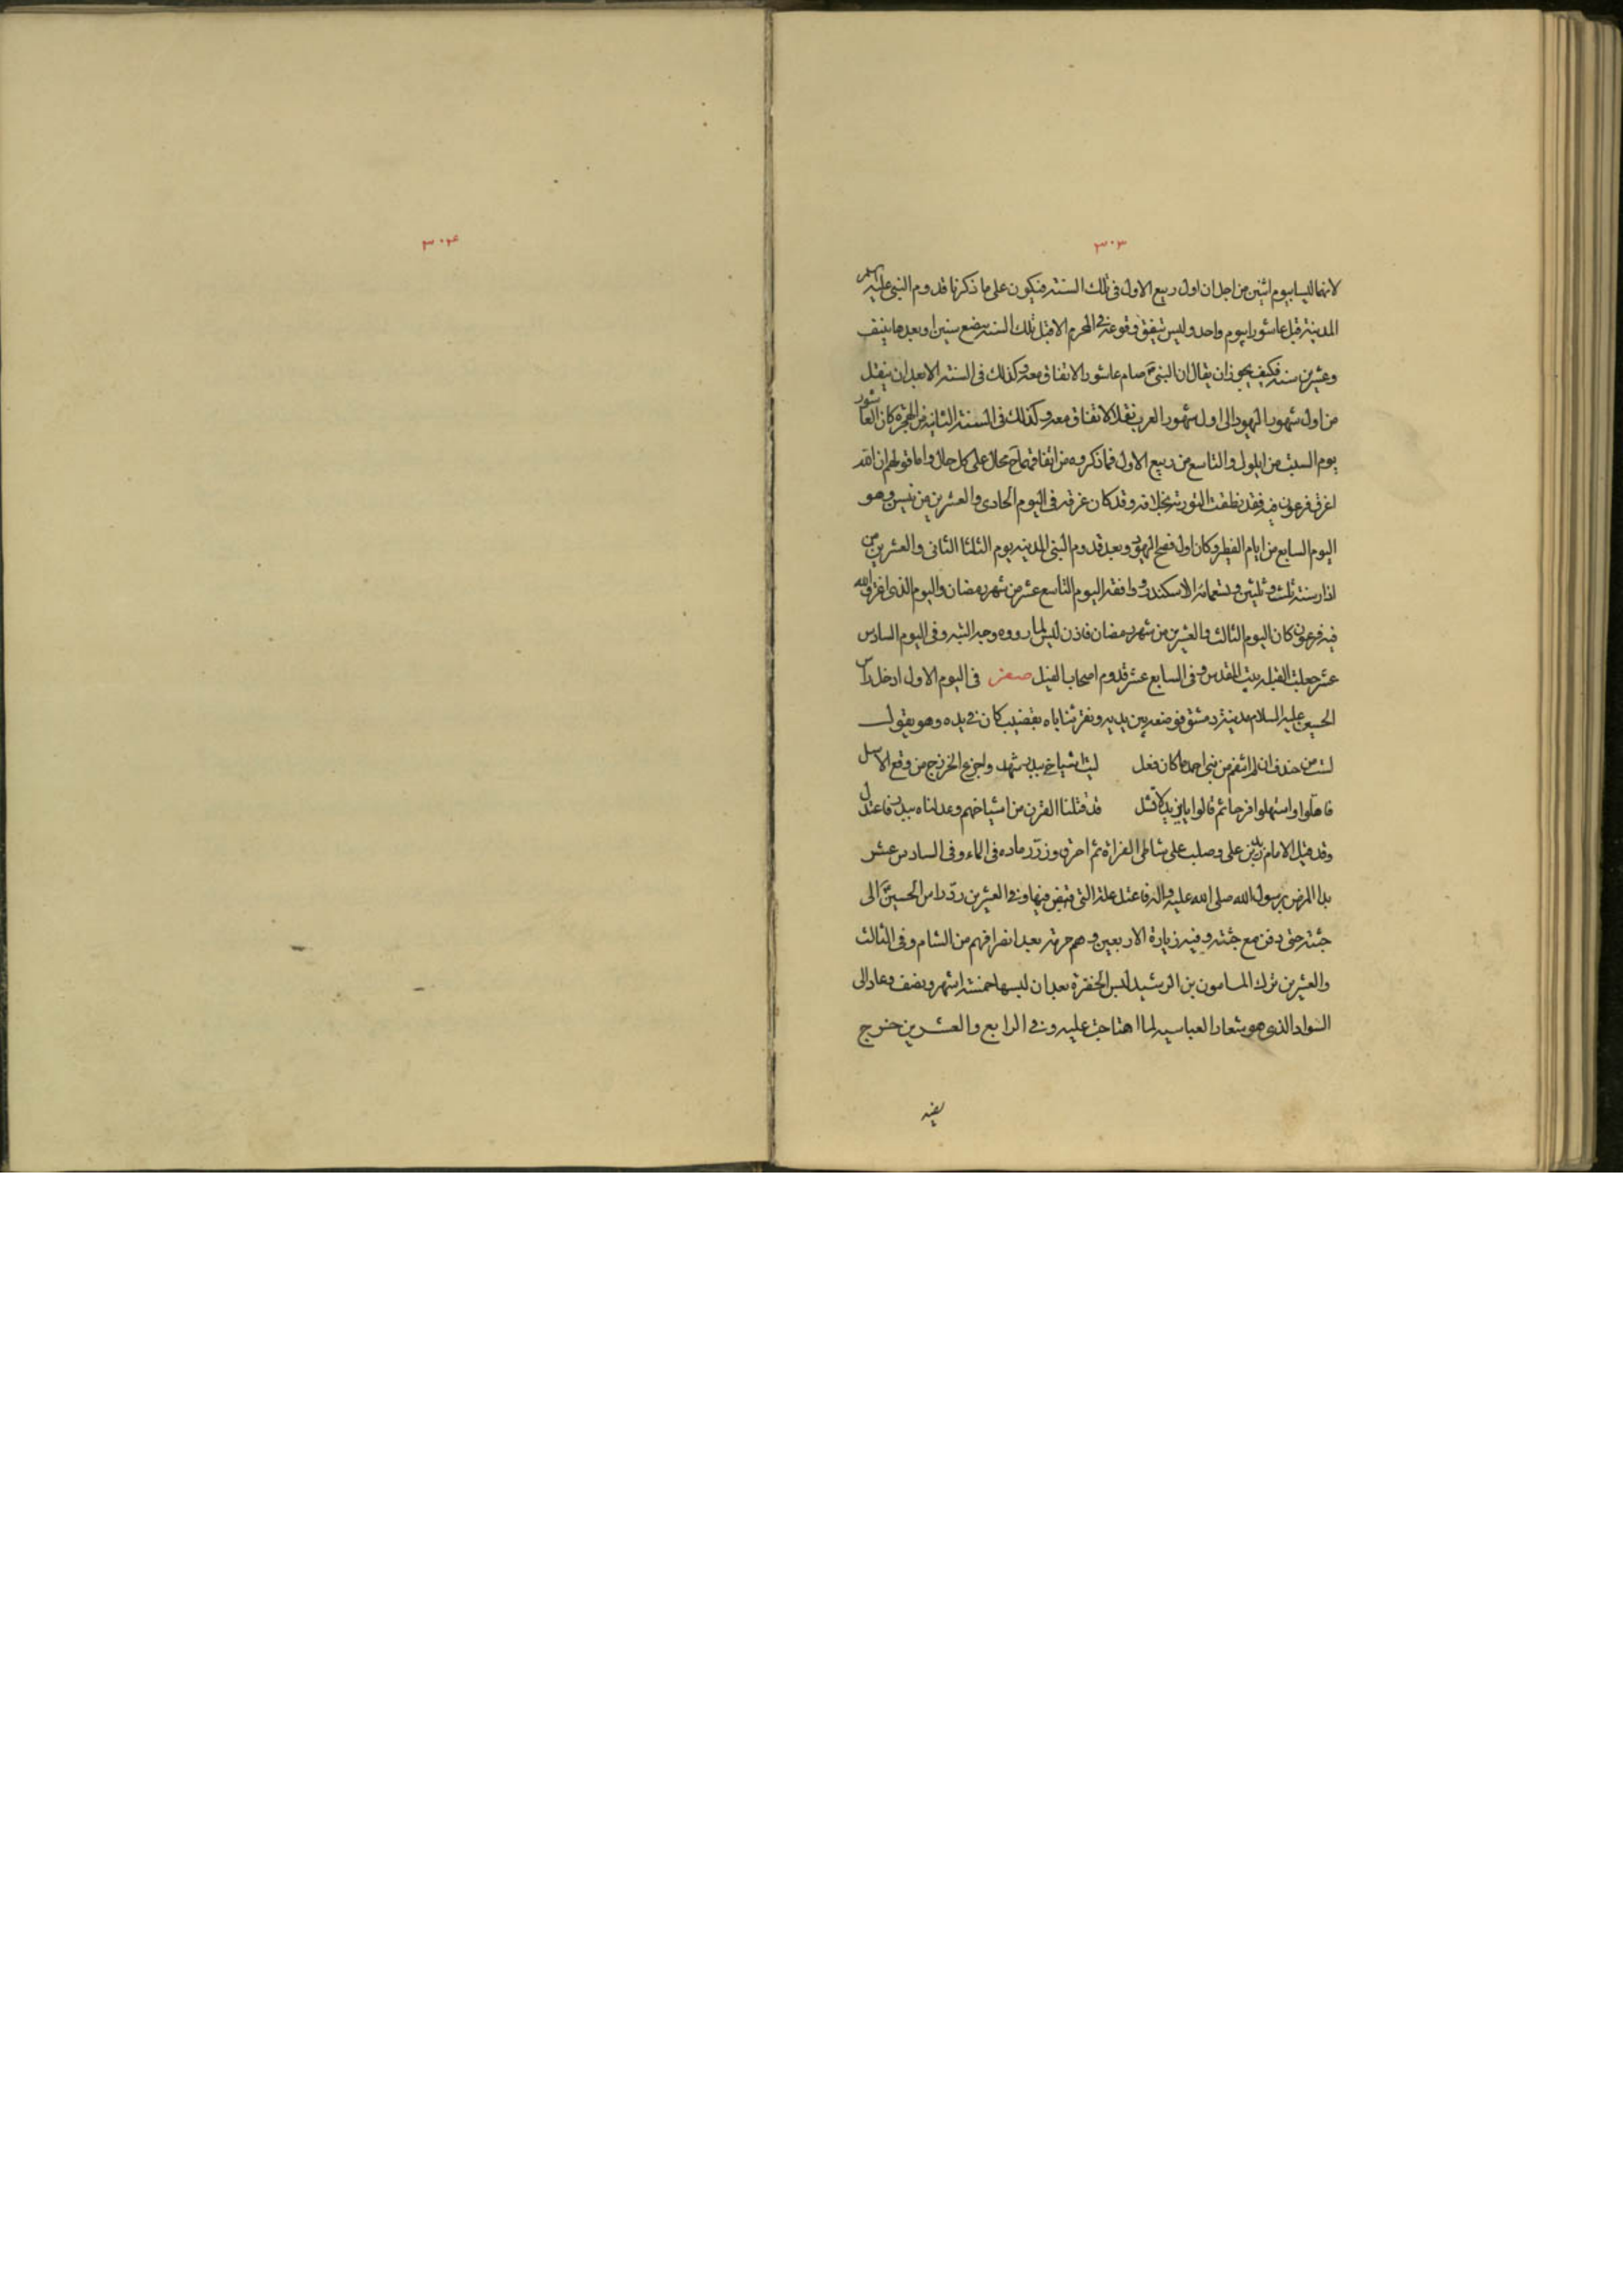 ٣٠٣
لانهما ليسا بيوم اثنين من اجل ان اول ربيع الاول فى تلك السنة فيكون على ما ذكرنا قدوم النبى عليه السلم
المدينة قبل عاشورا بيوم واحد وليس يتفق وقوعه فى المحرم الا قبل تلك السنه ببضع سنين او بعدها بنيف
وعشرين سنه فكيف يجوز ان يقال ان النبى صام عاشورا لاتفاق معه وكذلك فى السنة الا بعد ان ينقل
من اول شهور اليهود الى اول شهور العرب نقلا لاتفاق معه وكذلك فى السنة الثانية من الهجرة كان العاشور
يوم السبت من ايلول والتاسع من ربيع الاول فما ذكروه من اتفاقهما ح محال على كل حال واما قولهم ان الله
اغرق فرعون فيه فقد نطقت التورية بخلافه وقد كان غرقه فى اليوم الحادى والعشرين من نيسن وهو
اليوم السابع من ايام الفطير وكان اول فصح اليهود بعد قدوم النبى المدينه يوم الثلثا الثانى والعشرين من
اذار سنة ثلث وثلثين وتسعمائة الاسكندر ووافقه اليوم التاسع عشر من شهر رمضان واليوم الذى اغرق الله
فيه فرعون كان اليوم الثالث والعشرين من شهر رمضان فاذن ليس لما رووه وجه البتة وفى اليوم السادس
عشر جعلت القبله بيت المقدس وفى السابع عشر قدوم اصحاب الفيل صفر فى اليوم الاول ادخل راس
الحسين عليه السلام مدينة دمشق فوضعه بين يديه ونقر ثناياه بقضيب كان فى يده وهو يقول
لست من خندف ان لم انتقم من بنى احمد ما كان فعل ليت اشياخى ببدر شهدوا جزع الخزرج من وقع الاسل
فاهلوا واستهلوا فرحا ثم قالوا يا يزيد لا تشل قد قتلنا القرن من اشياخهم وعدلناه ببدر فاعتدل
وقد قتل الامام زيد بن على وصلب على شاطى الفراة ثم احرق وذرر رماده فى الماء وفى السادس عشر
بدا المرض برسول الله صلى الله عليه واله فاعتل علته التى قبض فيها وفى العشرين رد راس الحسين الى
جثته حتى دفن مع جثته وفيه زيارة الاربعين وهم حرمه بعد انصرافهم من الشام وفى الثالث
والعشرين ترك المامون بن الرشيد لبس الخضرة بعد ان لبسها خمسة اشهر ونصف وعاد الى
السواد الذى هو شعار العباسيه لما اهتاجت عليه وفى الرابع والعشرين خرج
٣٠٤